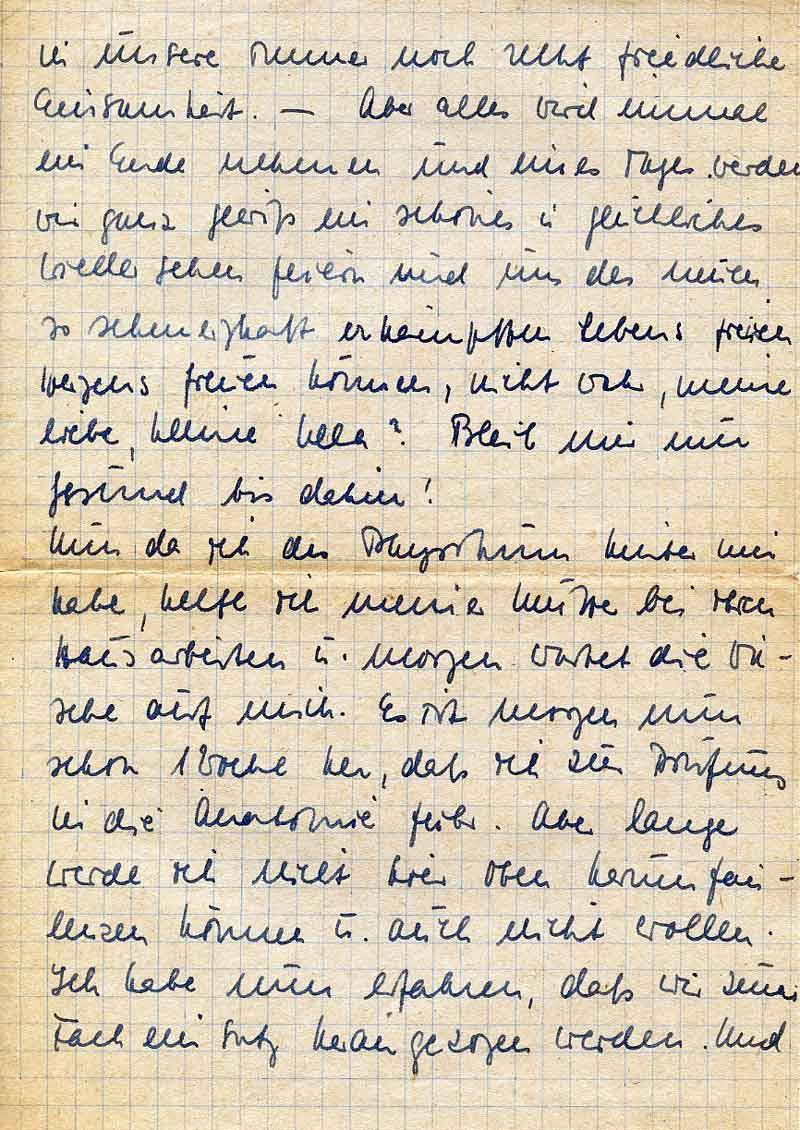 in unsere immer noch recht friedliche
Einsamkeit. — Aber alles wird einmal
ein Ende nehmen und eines Tages werden
wir ganz gewiß ein schönes u. glückliches
Wiedersehen feiern und uns des neuen
so schmerzhaft erkämpften Lebens freien
Herzens freuen können, nicht wahr, meine
liebe, kleine Hella? Bleib mir nur
gesund bis dahin!
Nun da ich das Physikum hinter mir
habe, helfe ich meiner Mutter bei ihren
Hausarbeiten u. morgen wartet die Wä-
sche auf mich. Es ist morgen nun
schon 1 Woche her, daß ich zur Prüfung
in die Anatomie fuhr. Aber lange
werde ich nicht hier oben herumfau-
lenzen können u. auch nicht wollen.
Ich habe nun erfahren, daß wir zum
Facheinsatz herangezogen werden. Und